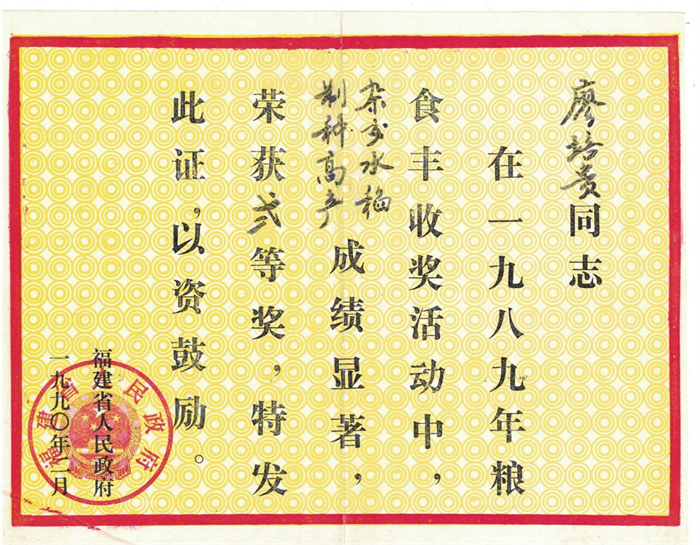 廖培贵同志
在一九八九年粮
食丰收奖活动中，
杂交水稻
制种高产
成绩显著，
荣获贰等奖，特发
此证，以资鼓励。
福建省人民政府
一九九〇年二月
福建省人民政府